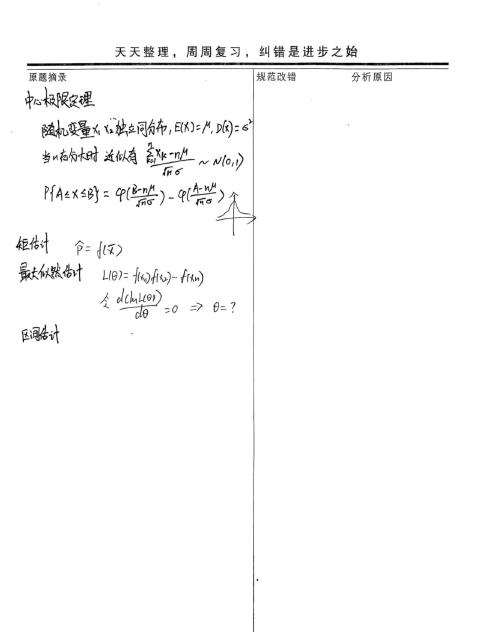 天天整理，周周复习，纠错是进步之始
原题摘录 规范改错 分析原因
中心极限定理
随机变量X₁ X₂…独立同分布, E(X)=μ, D(X)=σ²
当n充分大时 近似有 (∑_{k=1}^{n} X_k - nμ)/(√n σ) ~ N(0,1)
P{A≤X≤B} = φ((B-nμ)/(√n σ)) - φ((A-nμ)/(√n σ))
矩估计 p̂ = f(x̄)
最大似然估计 L(θ)= f(x₁)f(x₂)… f(xn)
令 d(lnL(θ))/dθ =0 ⇒ θ=?
区间估计